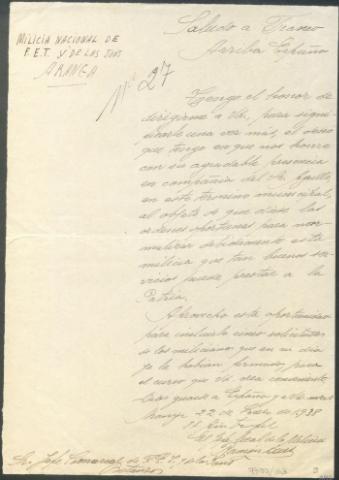 MILICIA NACIONAL DE
F.E.T. Y DE LAS JONS
ARANGA
Saludo a Franco
Arriba España
Nº 27
Tengo el honor de
dirigirme a Vd. para signi
ficarle una vez más, el deseo
que tengo en que nos honre
con su agradable presencia
en compañia del Sr.
en este termino municipal,
al objeto de que dicte las
ordenes oportunas para nor-
malizar debidamente esta
milicia que tan buenos ser-
vicios puede prestar a la
Patria.
Aprovecho esta oportunidad
para incluirle cinco solicitudes
de los milicianos que en su dia
ya le habian firmado, para
el curso que Vd. crea conveniente
Dios guarde a España y a Vd.
Aranga 22 de 1938
II. Año Triunfal
El Jefe local de la Milicia
Ramon
Sr. Jefe Comarcal de F.E.T. y de las Jons
Betanzos